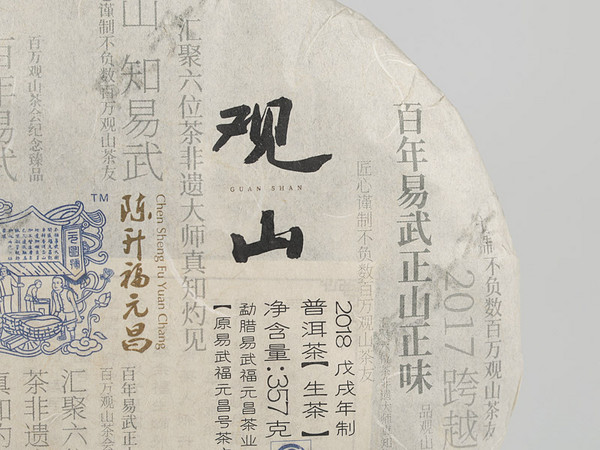 观山
GUAN SHAN
百年易武正山正味
匠心谨制不负数百万观山茶友
2018 戊戌年制
普洱茶【生茶】
净含量:357克
勐腊易武福元昌茶业
【原易武福元昌号茶
汇聚六位茶非遗大师真知灼见
陈升福元昌
Chen Sheng Fu Yuan Chang
TM
山 知易武
谨制不负数百万观山茶友
百万观山茶会纪念臻品
百年易武
2017 跨越
谨制不负数百万观山茶友
品观山
百年易武正
百万观山茶会
汇聚六
茶非遗
真知灼